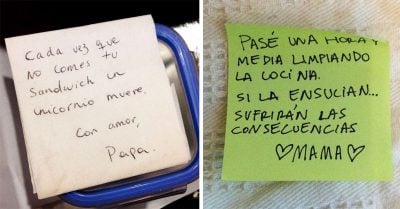 Cada vez que
no comes tu
Sandwich un
unicornio muere.
Con amor,
Papa.
PASÉ UNA HORA Y
MEDIA LIMPIANDO
LA COCINA.
SI LA ENSUCIAN...
SUFRIRÁN LAS
CONSECUENCIAS
♡MAMA♡